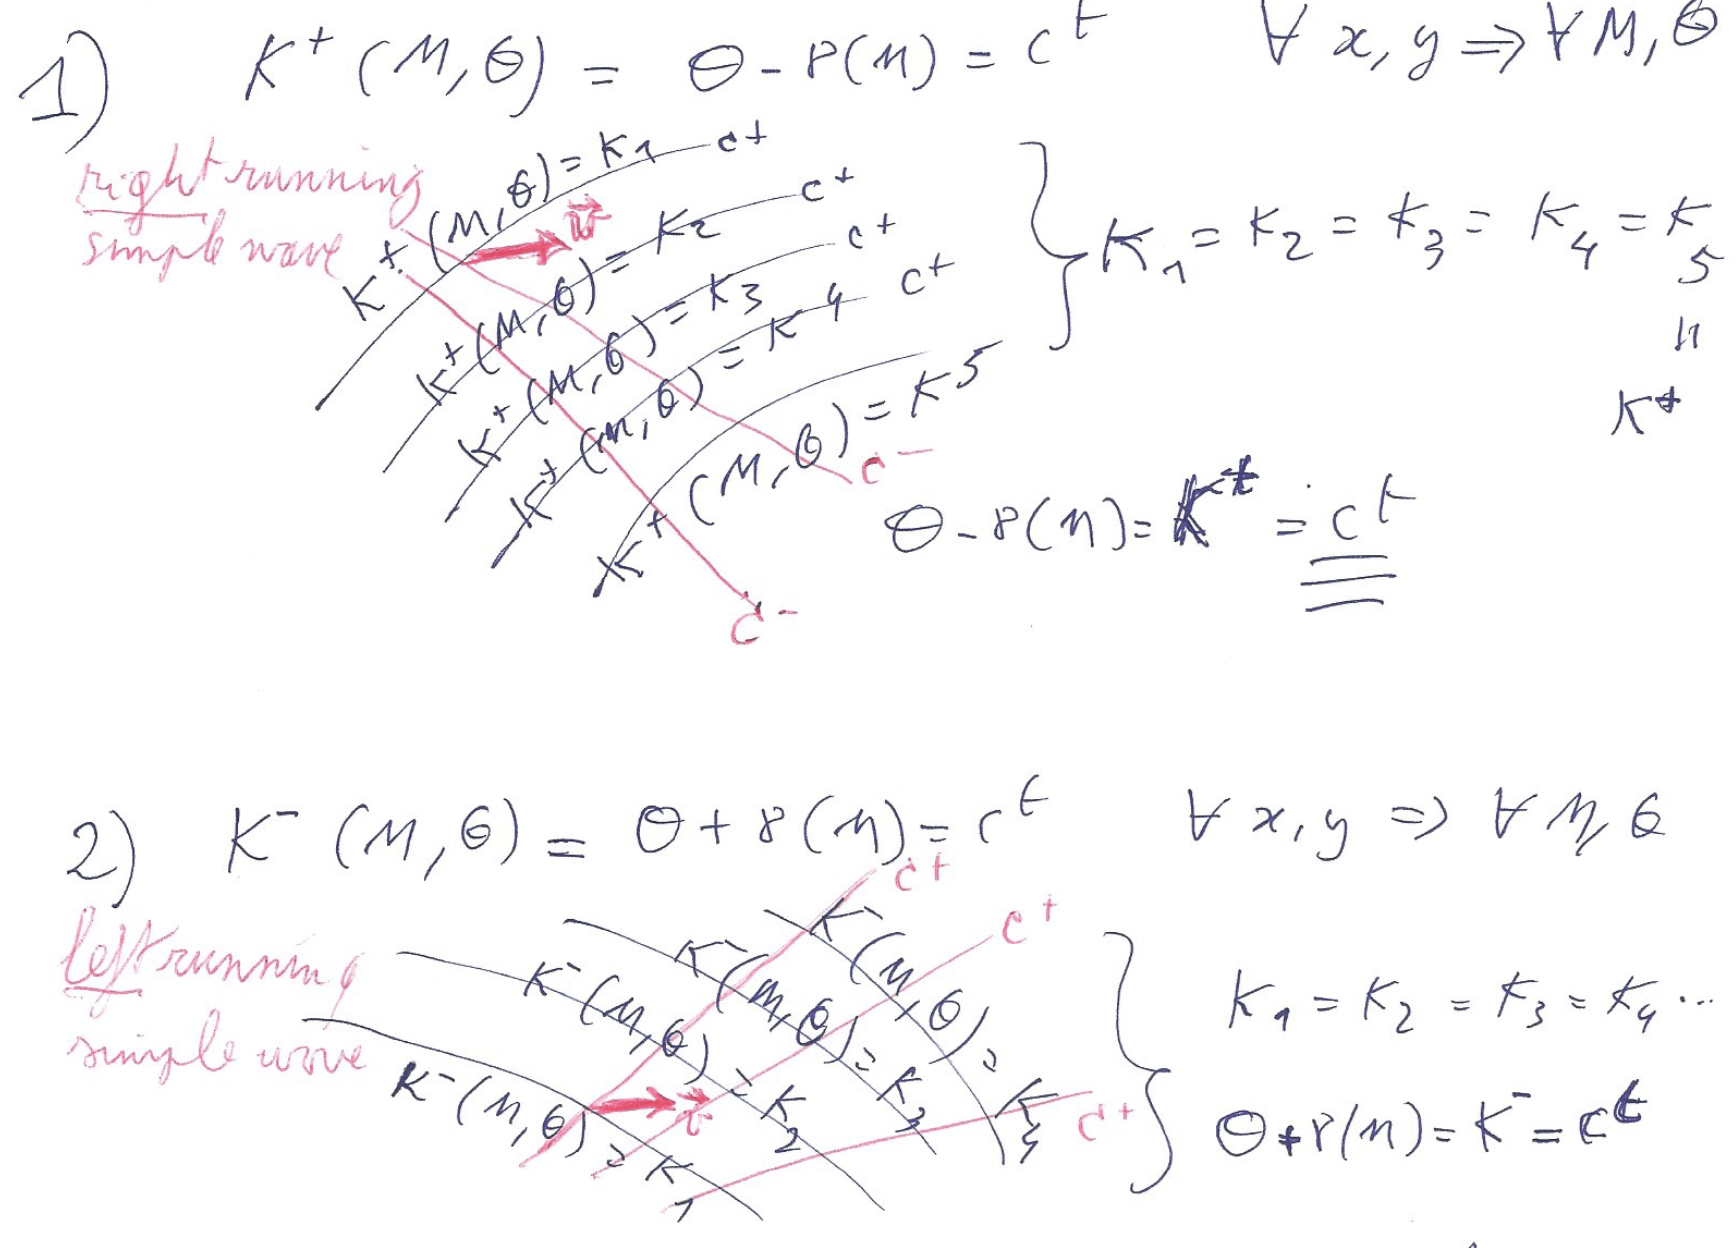 1) K⁺(M,θ) = θ - γ(M) = cᵗ ∀ x,y ⇒ ∀ M,θ
right running
simple wave
K⁺(M,θ) = K1 c⁺
v⃗
K⁺(M,θ) = K2 c⁺
K⁺(M,θ) = K3 c⁺
K⁺(M,θ) = K4 c⁺
K⁺(M,θ) = K5
} K₁ = K₂ = K₃ = K₄ = K₅
"
K⁺
c⁻
θ - γ(M) = K⁺ = cᵗ
c⁻
2) K⁻(M,θ) = θ + γ(M) = cᵗ ∀ x,y ⇒ ∀ M,θ
left running
simple wave
c⁺
c⁺
c⁺
K⁻(M,θ) = K1
K⁻(M,θ) = K2
K⁻(M,θ) = K3
K⁻(M,θ) = K4
v⃗
} K₁ = K₂ = K₃ = K₄ ...
θ + γ(M) = K⁻ = cᵗ